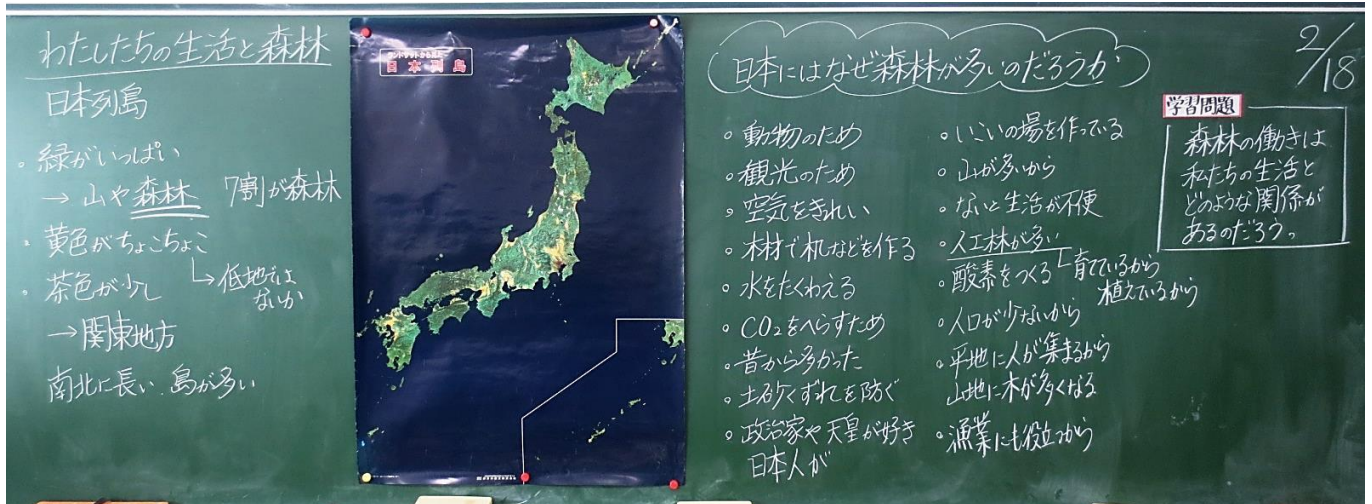 わたしたちの生活と森林
日本列島
。緑がいっぱい
→ 山や森林 7割が森林
・黄色がちょこちょこ
↳低地では
ないか
・茶色が少し
→関東地方
南北に長い 島が多い
日本列島
日本にはなぜ森林が多いのだろうか
2/18
。動物のため
。観光のため
。空気をきれい
。木材で机などを作る
。水をたくわえる
。CO2をへらすため
。昔から多かった
。土砂くずれを防ぐ
。政治家や天皇が好き
日本人が
。いこいの場を作っている
。山が多いから
。ないと生活が不便
。人工林が多い
↳育てているから
植えているから
。酸素をつくる
。人口が少ないから
。平地に人が集まるから
山地に木が多くなる
。漁業にも役立つから
学習問題
森林の働きは
私たちの生活と
どのような関係が
あるのだろう。